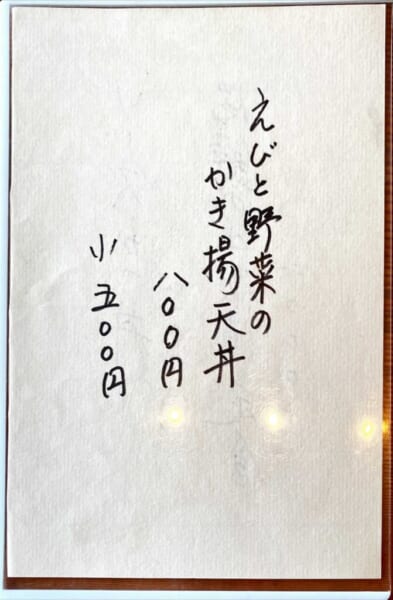 えびと野菜の
かき揚天丼
八〇〇円
小 五〇〇円